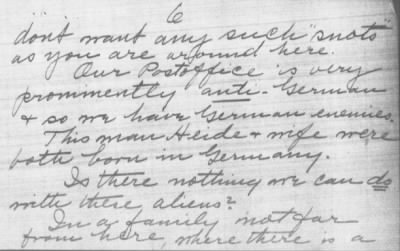 6
don't want any such "snots"
as you are around here.
Our Postoffice is very
promimently anti-German
& so we have German enemies.
This man Heide & wife were
both born in Germany.
Is there nothing we can do
with these aliens?
In a family not far
from here, where there is a